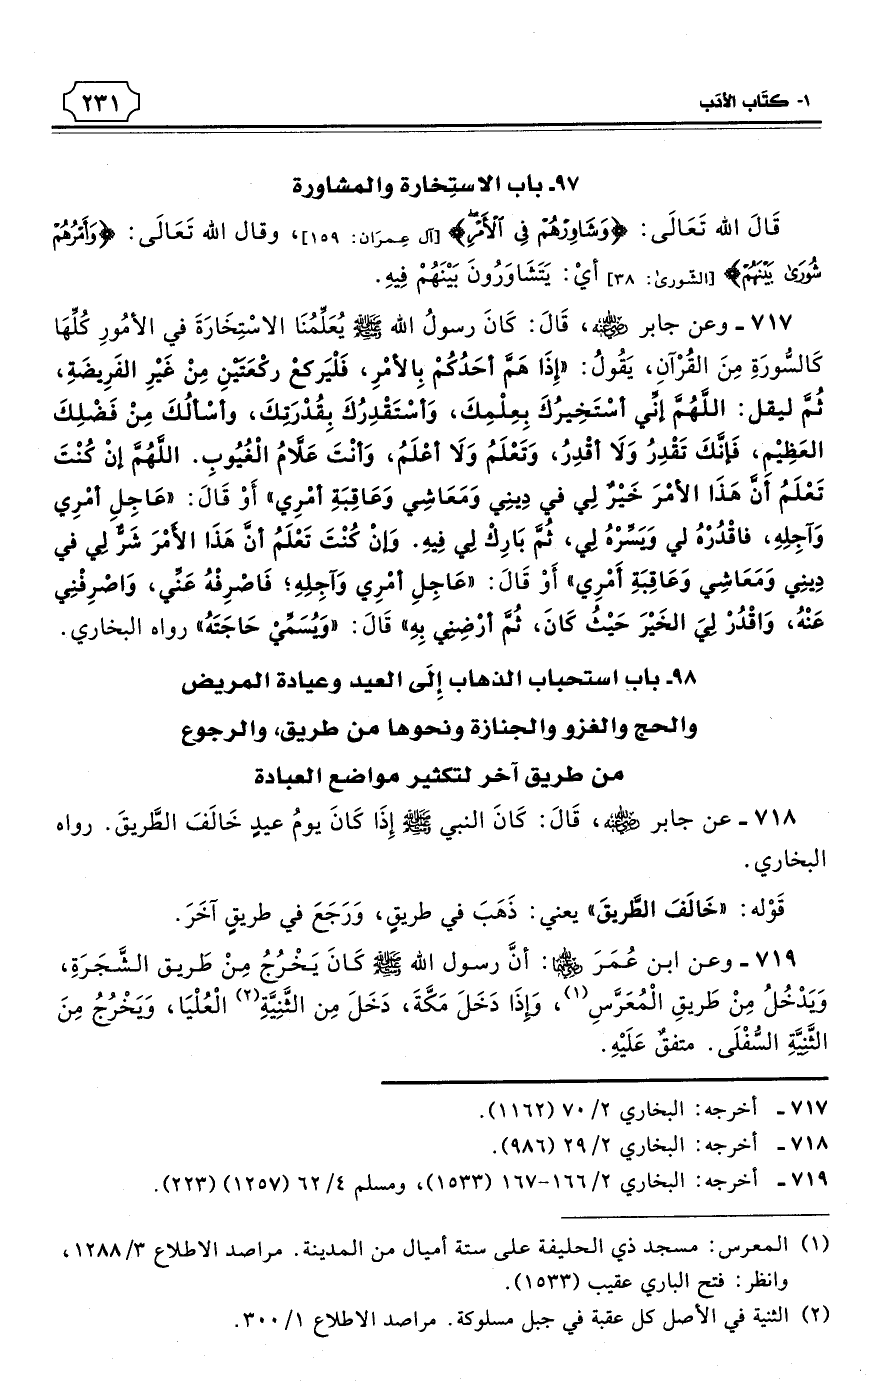 ١- كتَاب الأدَب
٢٣١
٩٧ـ باب الاستِخارة والمشاورة
قَالَ الله تَعَالَى: ﴿وَشَاوِرْهُمْ فِي ٱلْأَمْرِ﴾ [آل عِمرَان: ١٥٩]، وقال الله تَعَالَى: ﴿وَأَمْرُهُمْ
شُورَىٰ بَيْنَهُمْ﴾ [الشّورىٰ: ٣٨] أيْ: يَتَشَاوَرُونَ بَيْنَهُمْ فِيهِ.
٧١٧ ـ وعن جابر رضي الله عنه، قَالَ: كَانَ رسولُ الله ﷺ يُعَلِّمُنَا الاسْتِخَارَةَ في الأمُورِ كُلِّهَا
كَالسُّورَةِ مِنَ القُرْآنِ، يَقُولُ: «إِذَا هَمَّ أحَدُكُمْ بِالأمْرِ، فَلْيَركعْ ركْعَتَيْنِ مِنْ غَيْرِ الفَرِيضَةِ،
ثُمَّ ليقل: اللَّهُمَّ إنِّي أسْتَخِيرُكَ بِعِلْمِكَ، وَأسْتَقْدِرُكَ بِقُدْرَتِكَ، وأسْألُكَ مِنْ فَضْلِكَ
العَظِيْمِ، فَإنَّكَ تَقْدِرُ وَلَا أقْدِرُ، وَتَعْلَمُ وَلَا أعْلَمُ، وَأنْتَ عَلَّامُ الْغُيُوبِ. اللَّهُمَّ إنْ كُنْتَ
تَعْلَمُ أنَّ هَذَا الأمْرَ خَيْرٌ لِي في دِينِي وَمَعَاشِي وَعَاقِبَةِ أمْرِي» أَوْ قَالَ: «عَاجِلِ أمْرِي
وَآجِلِهِ، فاقْدُرْهُ لي وَيَسِّرْهُ لِي، ثُمَّ بَارِكْ لِي فِيهِ. وَإنْ كُنْتَ تَعْلَمُ أنَّ هَذَا الأَمْرَ شَرٌّ لِي في
دِينِي وَمَعَاشِي وَعَاقِبَةِ أَمْرِي» أَوْ قَالَ: «عَاجِلِ أمْرِي وَآجِلِهِ؛ فَاصْرِفْهُ عَنِّي، وَاصْرِفْنِي
عَنْهُ، وَاقْدُرْ لِيَ الخَيْرَ حَيْثُ كَانَ، ثُمَّ أرْضِنِي بِهِ» قَالَ: «وَيُسَمِّيْ حَاجَتَهُ» رواه البخاري.
٩٨ـ باب استحباب الذهاب إِلَى العيد وعيادة المريض
والحج والغزو والجنازة ونحوها من طريق، والرجوع
من طريق آخر لتكثير مواضع العبادة
٧١٨ ـ عن جابر رضي الله عنه، قَالَ: كَانَ النبي ﷺ إِذَا كَانَ يومُ عيدٍ خَالَفَ الطَّريقَ. رواه
البخاري.
قَوْله: «خَالَفَ الطَّريقَ» يعني: ذَهَبَ في طريقٍ، وَرَجَعَ في طريقٍ آخَرَ.
٧١٩ ـ وعن ابن عُمَرَ رضي الله عنهما: أنَّ رسول الله ﷺ كَانَ يَخْرُجُ مِنْ طَريق الشَّجَرَةِ،
وَيَدْخُلُ مِنْ طَريقِ الْمُعَرَّسِ(١)، وَإِذَا دَخَلَ مَكَّةَ، دَخَلَ مِن الثَّنِيَّةِ(٢) الْعُلْيَا، وَيَخْرُجُ مِنَ
الثَّنِيَّةِ السُّفْلَى. متفقٌ عَلَيْهِ.
٧١٧ ـ أخرجه: البخاري ٢/ ٧٠ (١١٦٢).
٧١٨ ـ أخرجه: البخاري ٢/ ٢٩ (٩٨٦).
٧١٩ ـ أخرجه: البخاري ٢/ ١٦٦-١٦٧ (١٥٣٣)، ومسلم ٤/ ٦٢ (١٢٥٧) (٢٢٣).
(١) المعرس: مسجد ذي الحليفة على ستة أميال من المدينة. مراصد الاطلاع ٣/ ١٢٨٨،
وانظر: فتح الباري عقيب (١٥٣٣).
(٢) الثنية في الأصل كل عقبة في جبل مسلوكة. مراصد الاطلاع ١/ ٣٠٠.